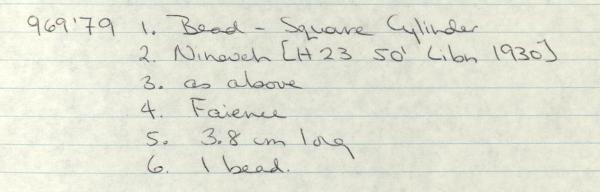 969'79 1. Bead - Square Cylinder
2. Nineveh [H 23 50' Libn 1930]
3. as above
4. Faience
5. 3.8 cm long
6. 1 bead.